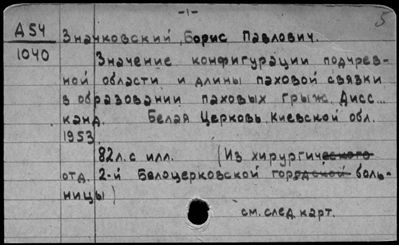 -1-
5
А54
1040
Значковский, Борис Павлович.
Значение конфигурации подчрев-
ной области и длины паховой связки
в образовании паховых грыж. Дисс...
канд. Белая Церковь Киевской обл.
1953.
82л. с илл. (Из хирургического
отд. 2-й Белоцерковской городской боль-
ницы)
см. след. карт.